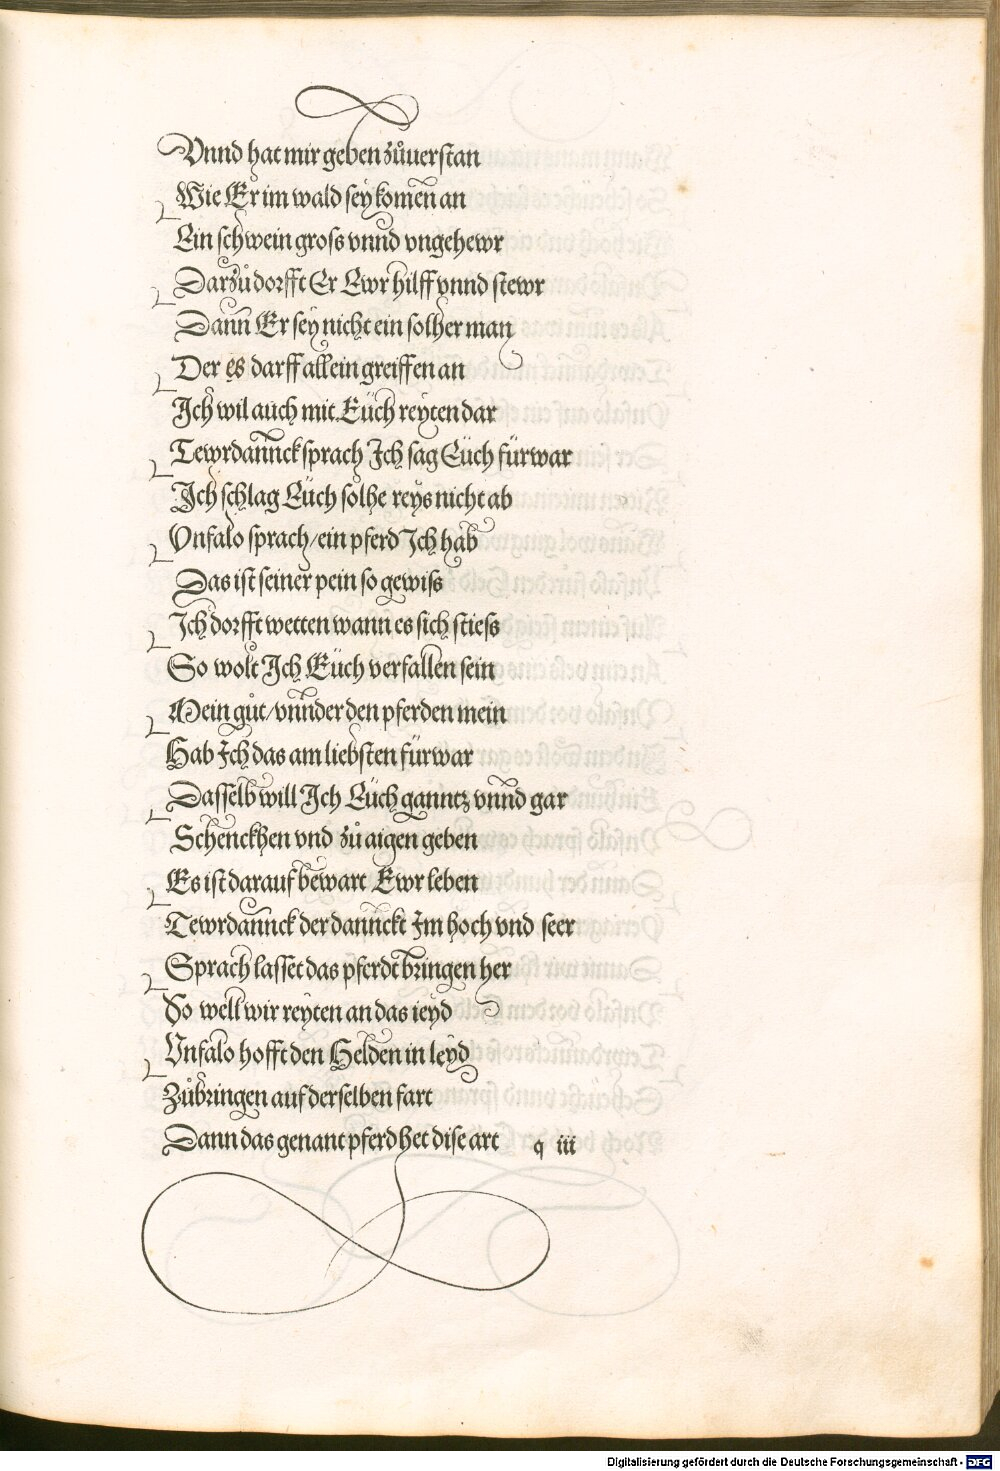 Vnnd hat mir geben zůuerstan
Wie Er im wald sey komen an
Ein schwein gross vnnd vngehewr
Darzů dorfft Er Ewr hilff vnnd stewr
Dann Er sey nicht ein solher man
Der es darff allein greiffen an
Ich wil auch mit Eüch reyten dar
Tewrdannck sprach Ich sag Eüch fürwar
Ich schlag Eüch solhe reys nicht ab
Vnfalo sprach/ein pferd Ich hab
Das ist seiner pein so gewiss
Ich dorfft wetten wann es sich stiess
So wolt Ich Eüch verfallen sein
Mein gůt/vnnder den pferden mein
Hab Ich das am liebsten fürwar
Dasselb will Ich Eüch ganntz vnnd gar
Schenckhen vnd zů aigen geben
Es ist darauf bewart Ewr leben
Tewrdannck der dannckt Im hoch vnd seer
Sprach lasset das pferdt bringen her
So well wir reyten an das ieyd
Vnfalo hofft den Helden in leyd
Zůbringen auf derselben fart
Dann das genant pferd het dise art q iii
Digitalisierung gefördert durch die Deutsche Forschungsgemeinschaft - DFG